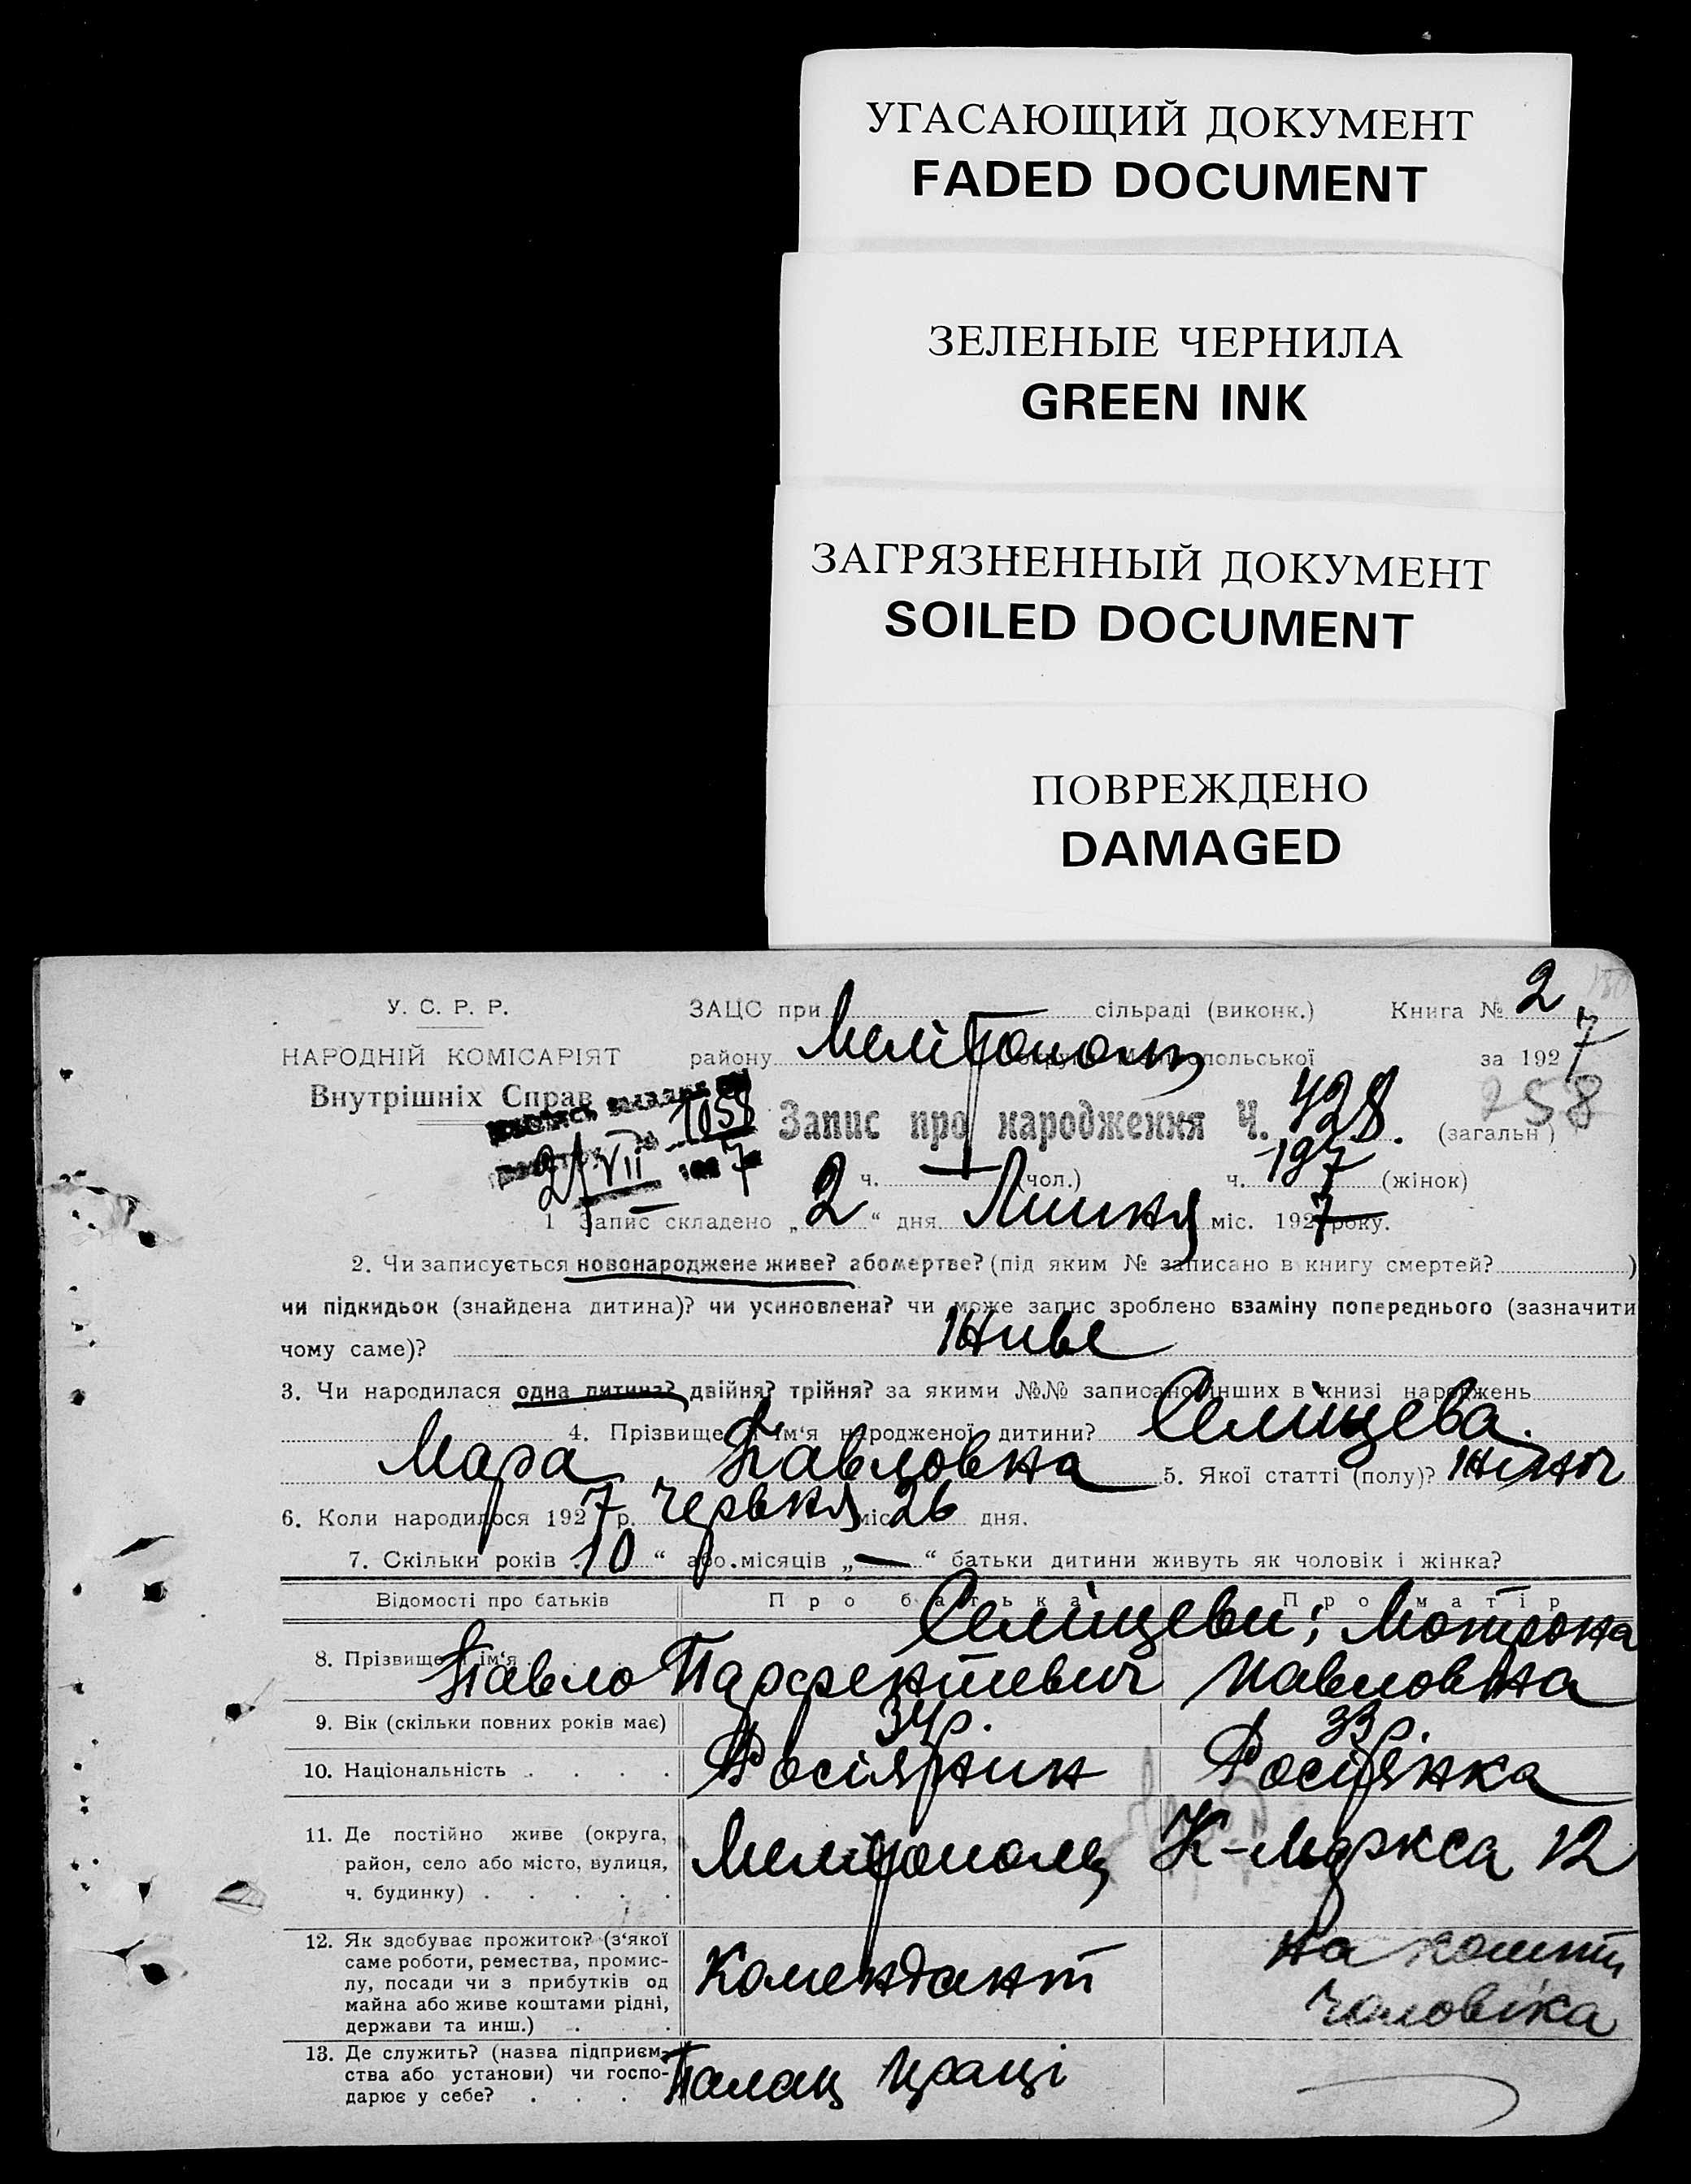 УГАСАЮЩИЙ ДОКУМЕНТ
FADED DOCUMENT
ЗЕЛЕНЫЕ ЧЕРНИЛА
GREEN INK
ЗАГРЯЗНЕННЫЙ ДОКУМЕНТ
SOILED DOCUMENT
ПОВРЕЖДЕНО
DAMAGED
У. С. Р. Р.
НАРОДНІЙ КОМІСАРІЯТ
Внутрішніх Справ
1058
21/VII 1927
ЗАЦС при сільраді (виконк.) Книга № 2
району Мелітополь польської за 1927
258
Запис про народження Ч. 428. (загальн)
ч. — (чол.) ч. 197 (жінок)
1 Запис складено „2“ дня Липня міс. 1927 року.
2. Чи записується новонароджене живе? або мертве? (під яким № записано в книгу смертей? )
чи підкидьок (знайдена дитина)? чи усиновлена? чи може запис зроблено взаміну попереднього (зазначити
чому саме)? Живе
3. Чи народилася одна дитина? двійня? трійня? за якими №№ записано інших в книзі народжень
4. Прізвище і ім'я народженої дитини? Селіщева.
Мара Павловна 5. Якої статті (полу)? Жіноч
6. Коли народилося 1927 р. Червня міс. 26 дня.
7. Скільки років „10“ або місяців „—“ батьки дитини живуть як чоловік і жінка?
Відомості про батьків Про батька Про матір
8. Прізвище і ім'я Селіщеви; Мотрона
Павло Парфентиевич Павловна
9. Вік (скільки повних років має) 34 р. 33 р.
10. Національність . . . . Росіянин Росіянка
11. Де постійно живе (округа, район, село або місто, вулиця, ч. будинку) . . . . . Мелітополь К-Маркса 12
12. Як здобуває прожиток? (з'якої саме роботи, ремества, промислу, посади чи з прибутків од майна або живе коштами рідні, держави та инш.) . . Комендант на кошти чоловіка
13. Де служить? (назва підприємства або установи) чи господарює у себе? . . . . Палац праці